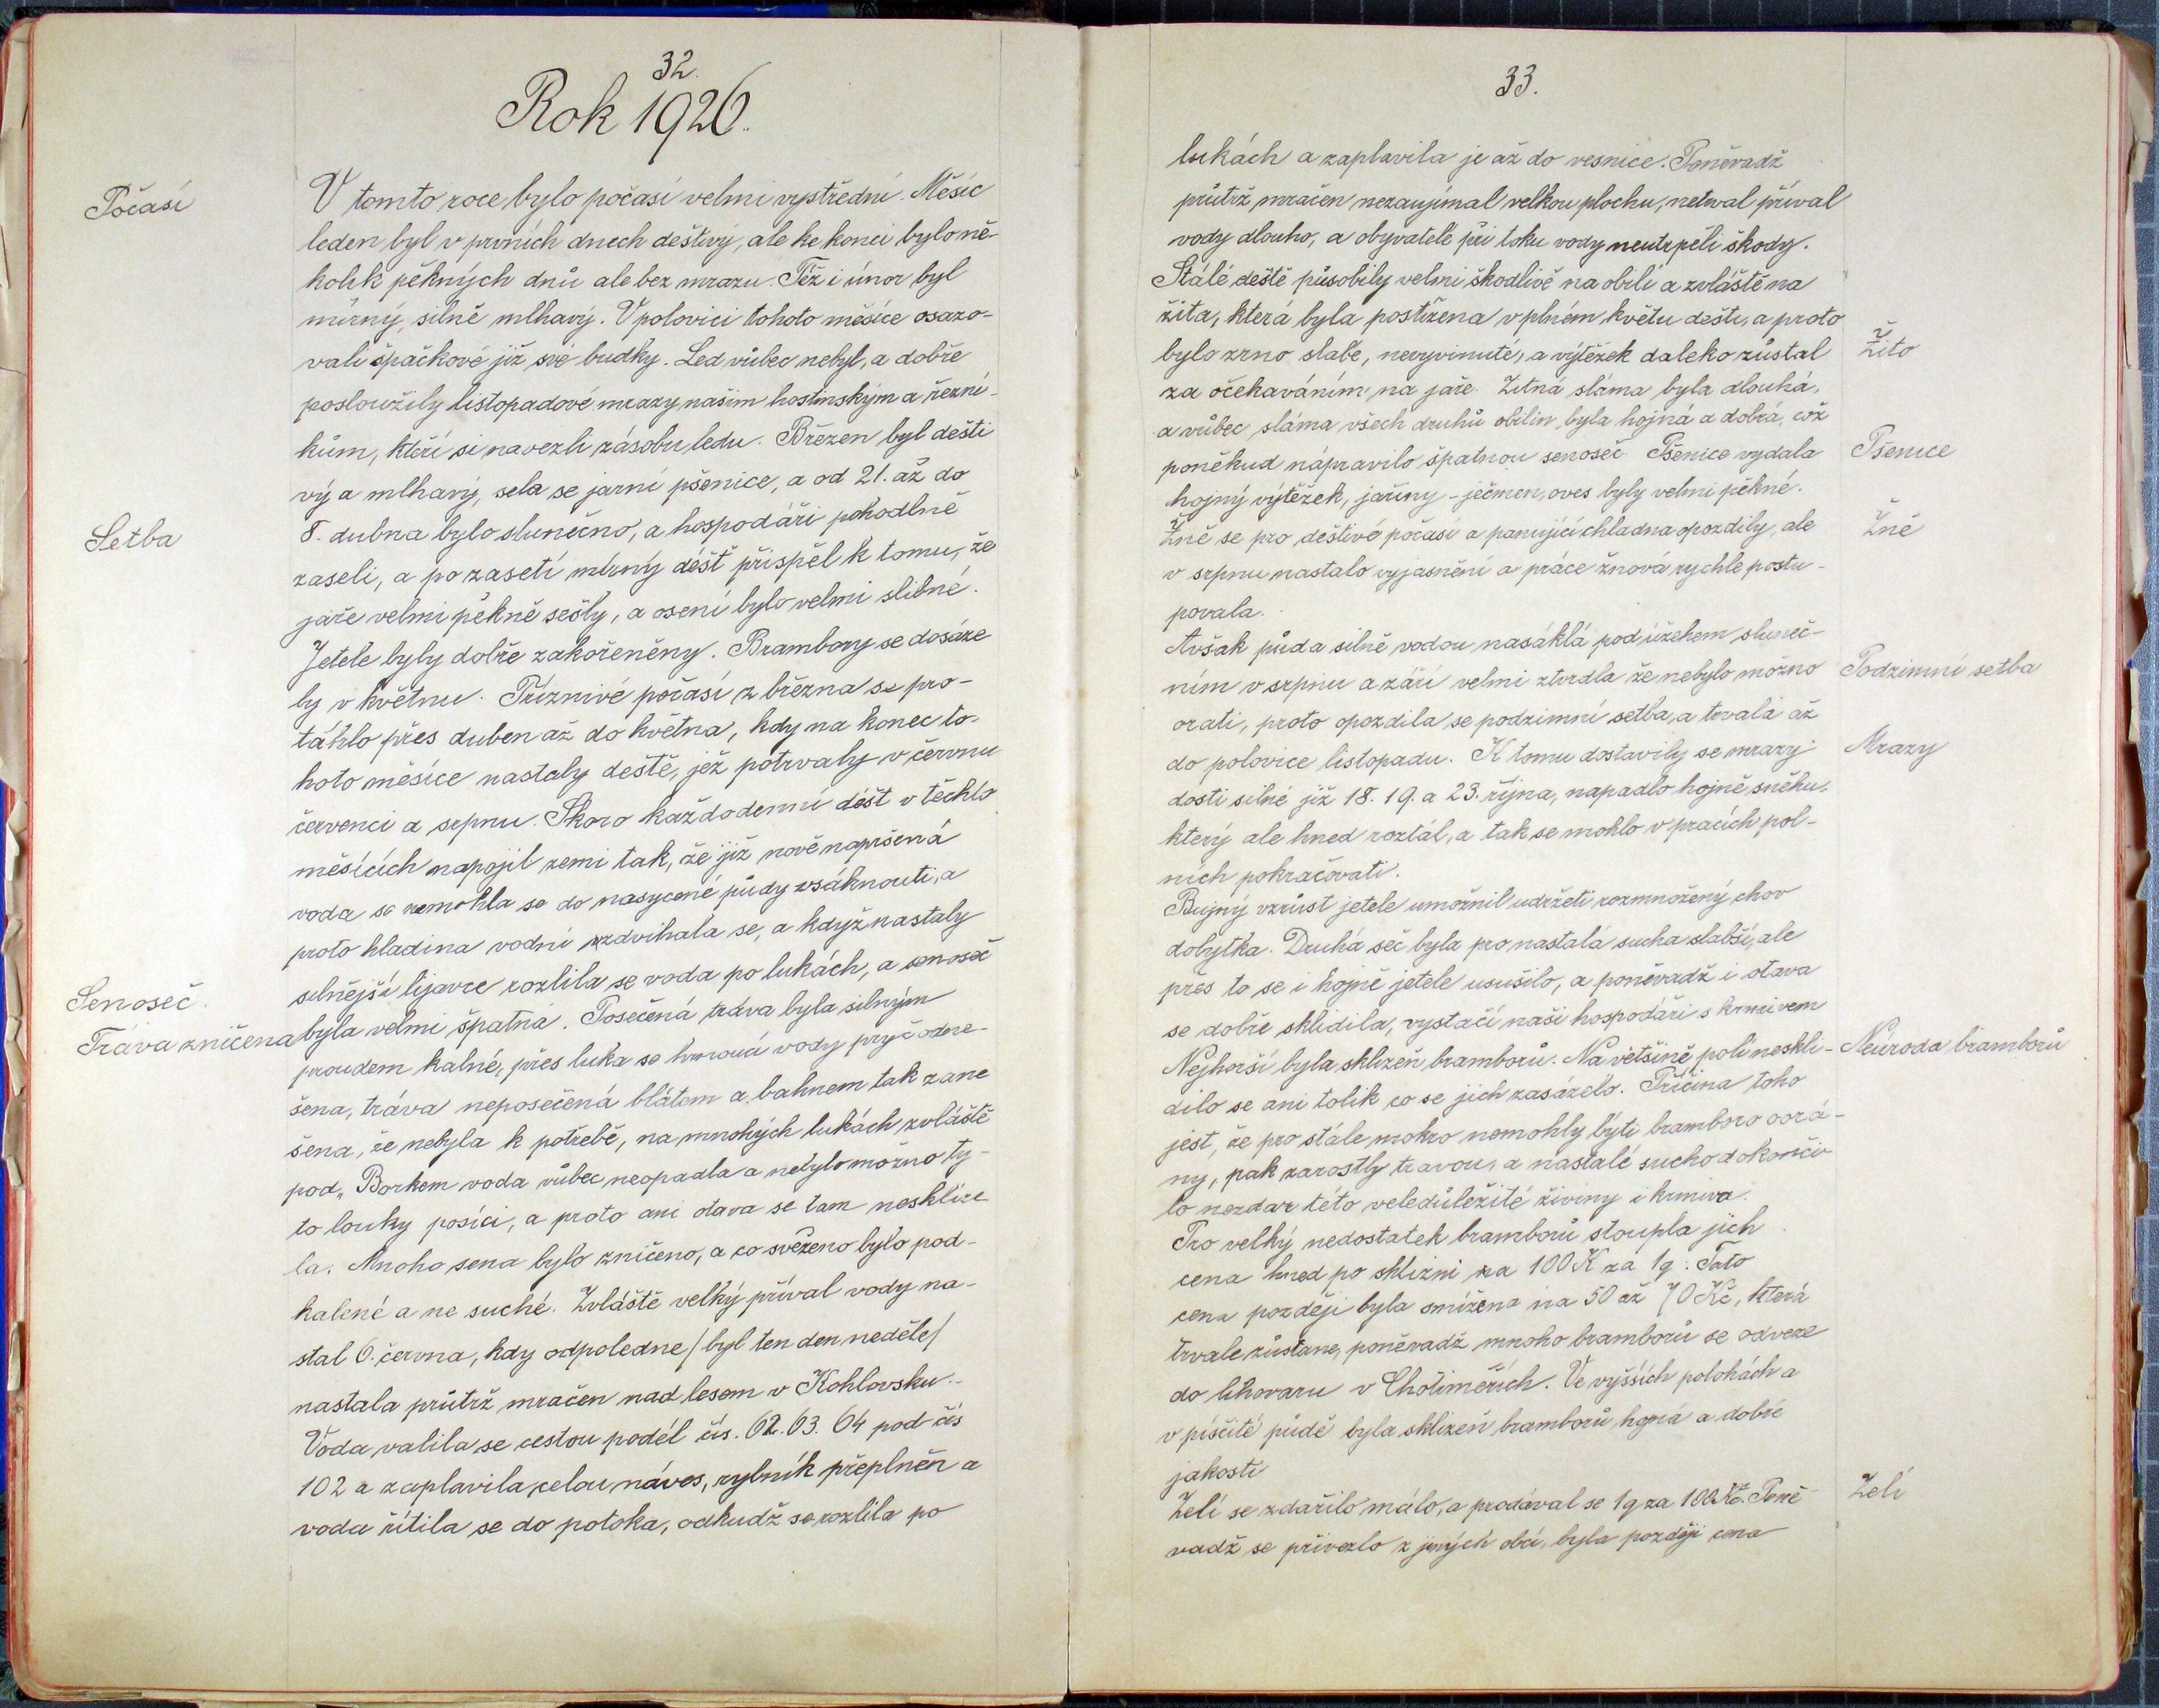 32.
Rok 1926.
Počasí
V tomto roce bylo počasí velmi výstřední. Měsíc
leden byl v prvních dnech deštivý, ale ke konci bylo ně-
kolik pěkných dnů ale bez mrazu. Též i únor byl
mírný, silně mlhavý. V polovici tohoto měsíce osazo-
vali špačkové již své budky. Led vůbec nebyl, a dobře
posloužily listopadové mrazy našim hostinským a řezní-
kům, kteří si navezli zásobu ledu. Březen byl dešti
vý a mlhavý, sela se jarní pšenice, a od 21. až do
Setba
8. dubna bylo slunečno, a hospodáři pohodlně
zaseli, a po zasetí mírný déšť přispěl k tomu, že
jaře velmi pěkně sešly, a osení bylo velmi slibné.
Jetele byly dobře zakořeněny. Brambory se dosáze
ly v květnu. Příznivé počasí z března se pro-
táhlo přes duben až do května, kdy na konec to-
hoto měsíce nastaly deště, jež potrvaly v červnu
červenci a srpnu. Skoro každodenní déšť v těchto
měsících napojil zemi tak, že již nově napršená
voda se nemohla se do nasycené půdy vsáknouti, a
proto hladina vodní zdvihala se, a když nastaly
silnější lijavce rozlila se voda po lukách, a senoseč
Senoseč.
Tráva zničena
byla velmi špatná. Posečená tráva byla silným
proudem kalné, přes luka se hrnoucí vody pryč odne-
šena, tráva neposečená blátem a bahnem tak zane
šena, že nebyla k potřebě, na mnohých lukách zvláště
pod „Borkem voda vůbec neopadla a nebylo možno ty-
to louky posíci, a proto ani otava se tam nesklize
la. Mnoho sena bylo zničeno, a co svezeno bylo pod-
kalené a ne suché. Zvláště velký příval vody na-
stal 6. června, kdy odpoledne /byl ten den neděle/
nastala průtrž mračen nad lesem v Kohlovsku.-
Voda valila se cestou podél čís. 62. 63. 64 pod čís
102 a zaplavila celou náves, rybník přeplněn a
voda řítila se do potoka, odkudž se rozlila po
33.
lukách a zaplavila je až do vesnice. Poněvadž
průtrž mračen nezaujímal velkou plochu, netrval příval
vody dlouho, a obyvatelé při toku vody neutrpěli škody.
Stálé deště působily velmi škodlivě na obilí a zvláště na
žita, která byla postižena v plném květu dešti, a proto
bylo zrno slabé, nevyvinuté, a výtěžek daleko zůstal
Žito
za očekáváním na jaře. Žitná sláma byla dlouhá,
a vůbec sláma všech druhů obilin byla hojná a dobrá, což
poněkud nápravilo špatnou senoseč. Pšenice vydala
Pšenice
hojný výtěžek, jařiny - ječmen, oves byly velmi pěkné.
Žně se pro deštivé počasí a panující chladna opozdily, ale
Žně
v srpnu nastalo vyjasnění a práce žňová rychle postu-
povala.
Avšak půda silně vodou nasáklá pod úžehem sluneč-
ním v srpnu a září velmi ztvrdla že nebylo možno
Podzimní setba
orati, proto opozdila se podzimní setba, a trvala až
do polovice listopadu. K tomu dostavily se mrazy
Mrazy
dosti silné již 18. 19. a 23. října, napadlo hojně sněhu,
který ale hned roztál, a tak se mohlo v pracích pol-
ních pokračovati.
Bujný vzrůst jetele umožnil udržeti rozmnožený chov
dobytka. Druhá seč byla pro nastalá sucha slabší, ale
přes to se i hojně jetele usušilo, a poněvadž i otava
se dobře sklidila, vystačí naši hospodáři s krmivem
Nejhorší byla sklizeň bramborů. Na většině polí neskli-
Neúroda bramborů
dilo se ani tolik co se jich zasázelo. Příčina toho
jest, že pro stálé mokro nemohly býti brambory oorá-
ny, pak zarostly travou, a nastalé sucho dokonči-
lo nezdar této veledůležité živiny i krmiva.
Pro velký nedostatek bramborů stoupla jich
cena hned po sklizni na 100 K za 1q. Tato
cena později byla snížena na 50 až 70 Kč, která
trvale zůstane, poněvadž mnoho bramborů se odveze
do lihovaru v Chotiměřích. Ve vyšších polohách a
v písčité půdě byla sklizeň bramborů hojná a dobré
jakosti
Zelí se zdařilo málo, a prodával se 1q za 100 Kč. Poně-
Zelí
vadž se přivezlo z jiných obcí, byla později cena